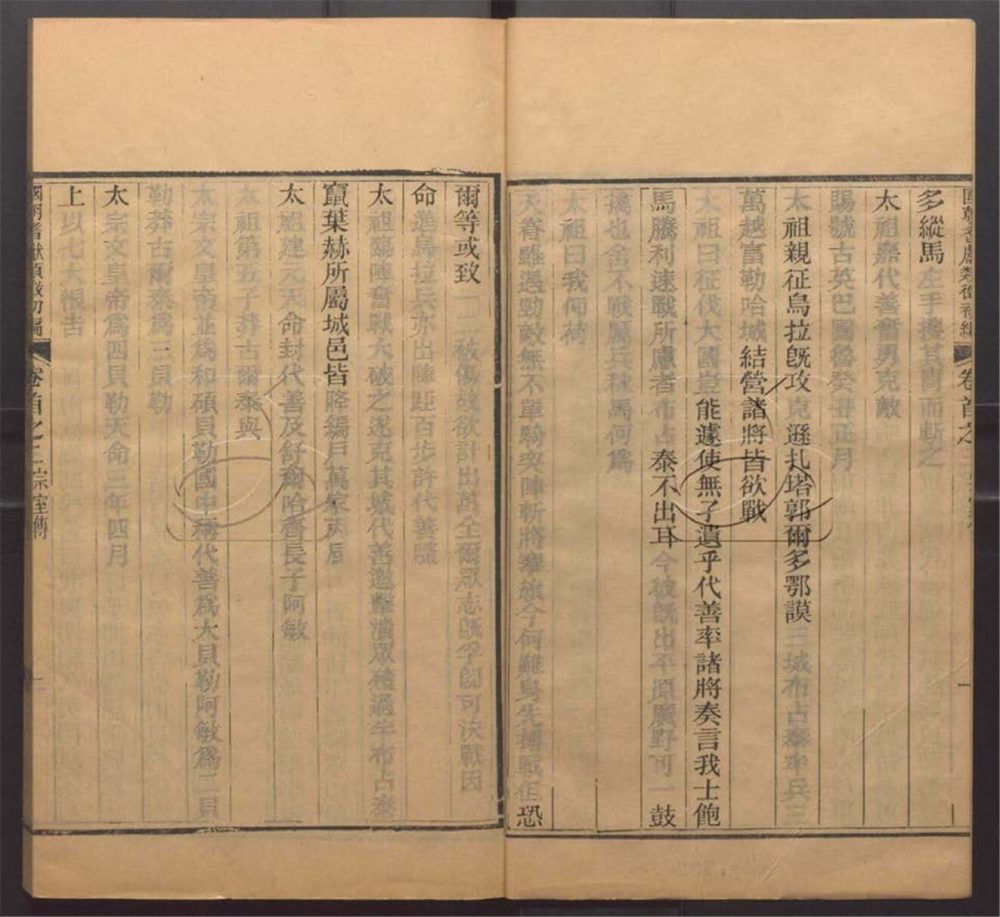 多縱馬左手攫其冑而斬之
太祖嘉代善奮勇克敵
賜號古英巴圖魯癸丑正月
太祖親征烏拉旣攻克遜扎塔郭爾多鄂謨三城布占泰率兵三
萬越富勒哈城結營諸將皆欲戰
太祖曰征伐大國豈能遽使無孑遺乎代善率諸將奏言我士飽
馬騰利速戰所慮者布占泰不出耳今彼旣出平原曠野可一鼓
擒也舍不戰厲兵秣馬何爲
太祖曰我荷
天眷雖遇勁敵無不單騎突陣斬將搴旗今何難身先搏戰但恐
爾等或致一二被傷故欲計出萬全爾眾志旣孚卽可決戰因
命進烏拉兵亦出陣距百步許代善隨
太祖臨陣奮戰大破之遂克其城代善邀擊潰眾殪過半布占泰
竄葉赫所屬城邑皆降編戶萬家丙辰
太祖建元天命封代善及舒爾哈齊長子阿敏
太祖第五子莽古爾泰與
太宗文皇帝並爲和碩貝勒國中稱代善爲大貝勒阿敏爲二貝
勒莽古爾泰爲三貝勒
太宗文皇帝爲四貝勒天命三年四月
上以七大恨告
卷首之三宗室傳